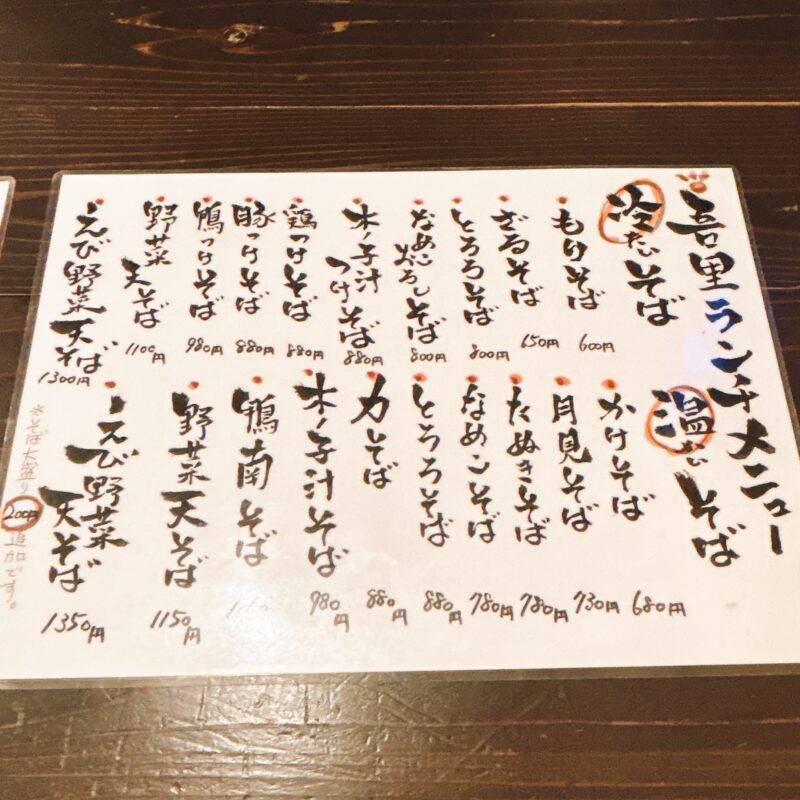 吾里ランチメニュー
冷たいそば
もりそば 600円
ざるそば 650円
とろろそば 800円
なめこおろしそば 800円
木ノ子汁つけそば 880円
鶏つけそば 880円
豚つけそば 880円
鴨つけそば 980円
野菜天そば 1100円
えび野菜天そば 1300円
温かいそば
かけそば 680円
月見そば 730円
たぬきそば 780円
なめこそば 780円
とろろそば 880円
力そば 880円
木ノ子汁そば 980円
鴨南そば
野菜天そば 1150円
えび野菜天そば 1350円
そば大盛り 200円 追加です。